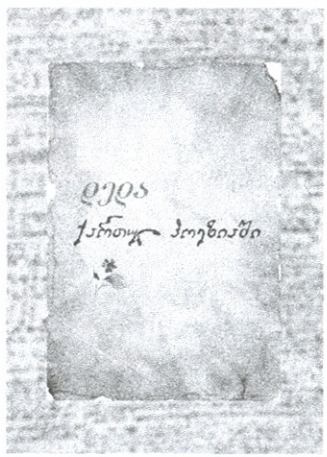 დედა
ქართულ პოეზიაში